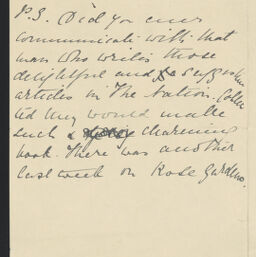 P.S. Did you ever
communicate with that
man who writes those
delightful and suggestive
articles in The Nation. Collec
ted they would make
such a charming
book. There was another
last week on Rose Gardens.